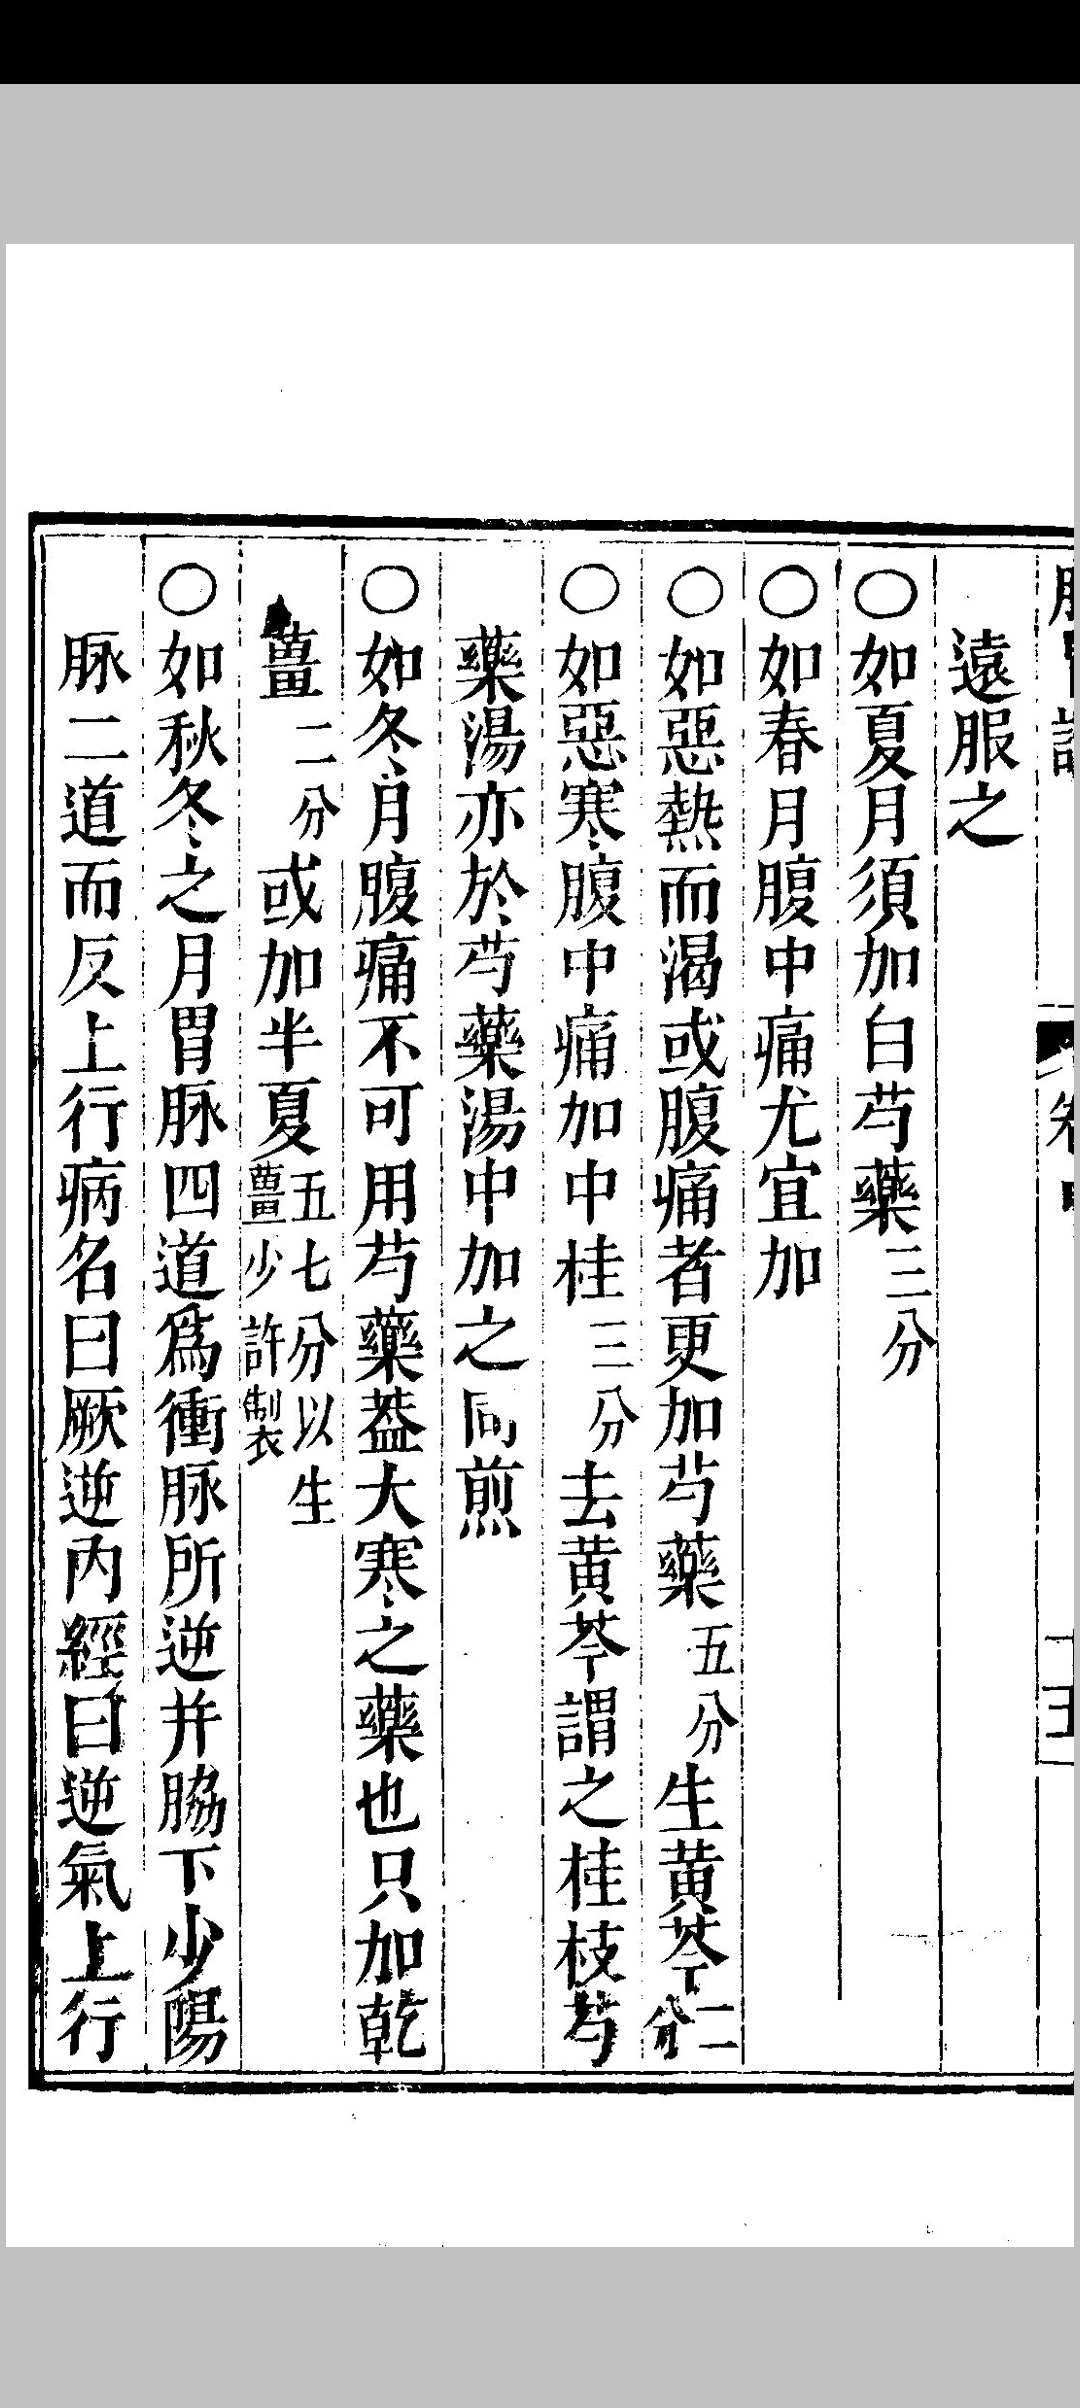 遠服之
○如夏月須加白芍藥三分
○如春月腹中痛尤宜加
○如惡熱而渴或腹痛者更加芍藥五分生黄芩二分
○如惡寒腹中痛加中桂三分去黄芩謂之桂枝芍
藥湯亦於芍藥湯中加之同煎
○如冬月腹痛不可用芍藥葢大寒之藥也只加乾
薑二分或加半夏五七分以生薑少許製
○如秋冬之月胃脉四道爲衝脉所逆并脇下少陽
脉二道而反上行病名曰厥逆内經曰逆氣上行